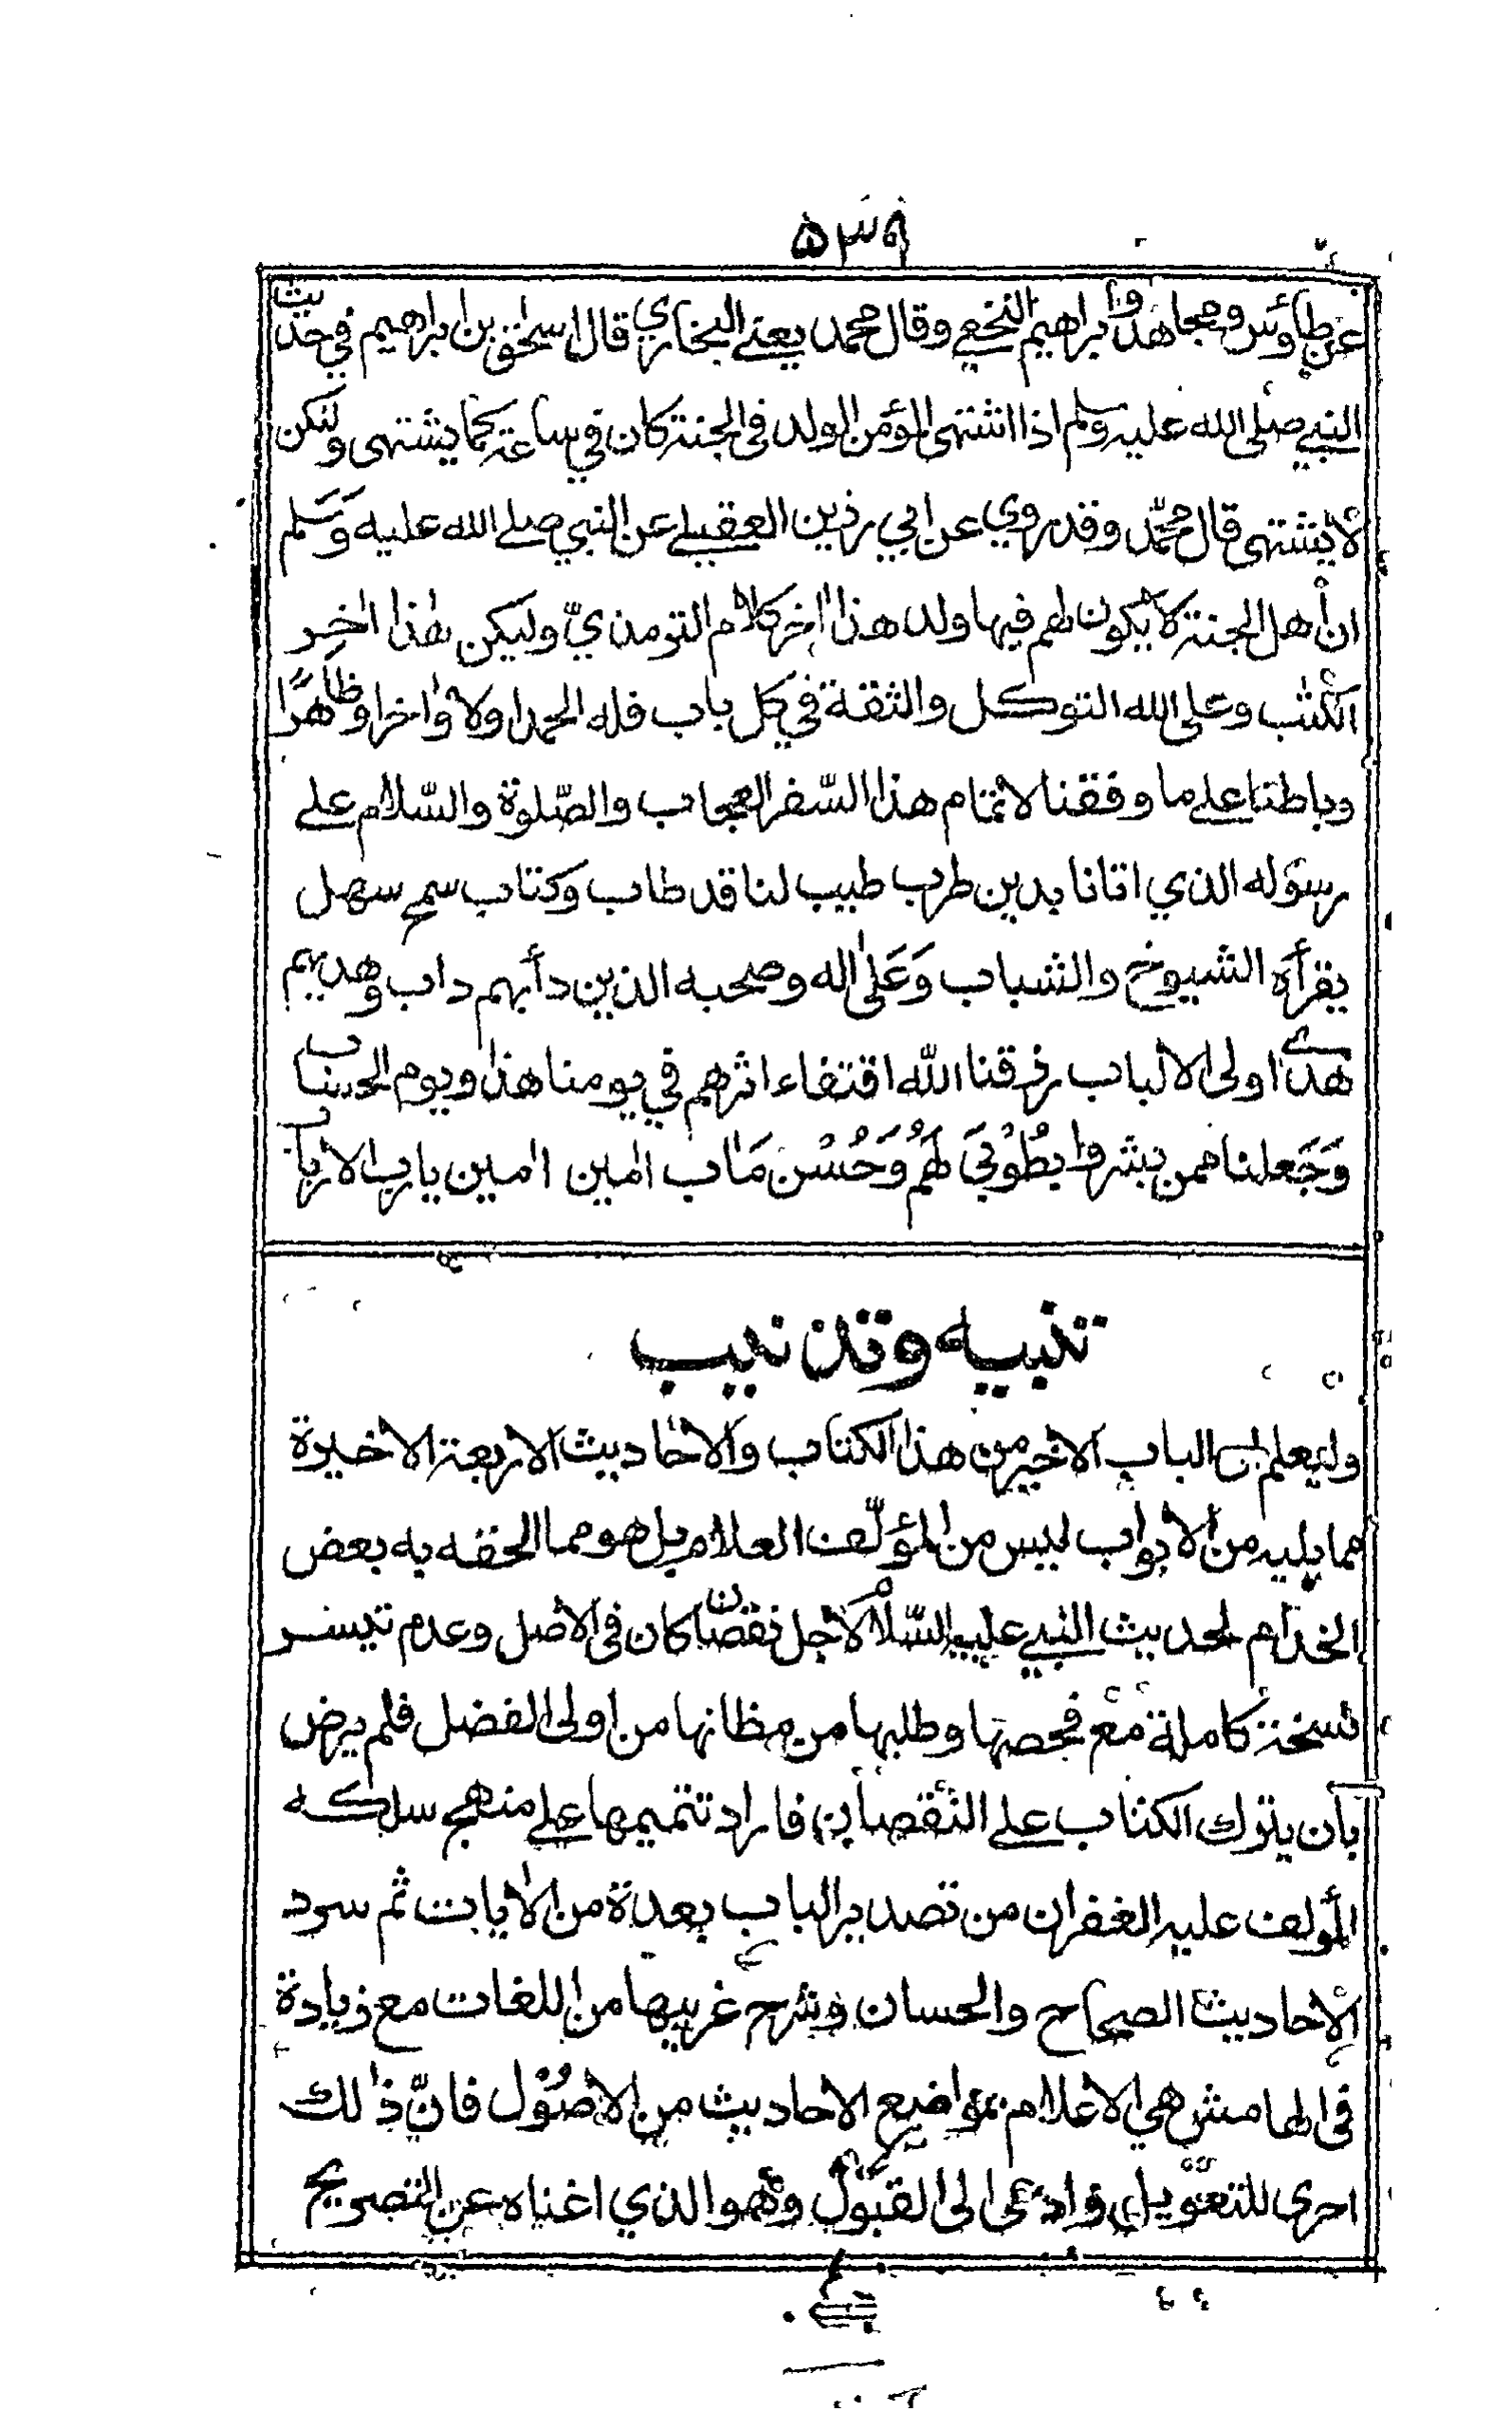 ٥٣٩
عن طاؤس ومجاهد وابراهيم النخعي وقال محمد يعني البخاري قال اسحٰق بن ابراهيم في حديث
النبي صلى الله عليه وسلم اذا اشتهى المؤمن الولد فى الجنة كان في ساعة كما يشتهى ولكن
لا يشتهى قال محمّد وقد روي عن ابي رزين العقيلي عن النبي صلى الله عليه وَسَلم
ان أهل الجنة لا يكون لهم فيها ولد هذا اٰخر كلام الترمذيّ وليكن هٰذا اٰخِر
الكتٰب وعلى الله التوكل والثقة في كل باب فله الحمد اولا واٰخرا وظاهرًا
وباطنا على ما وفقنا لاتمام هذا السّفر العجاب والصّلوة والسّلام على
رسوله الذي اتانا بدين طرب طبيب لنا قد طاب وكتاب سمح سهل
يقرأه الشيوخ والشباب وَعَلىٰ اله وصحبه الذين دأبهم داب وهديهم
هدى اولى الالباب رزقنا اللّٰه اقتفاء اثرهم في يومنا هذا ويوم الحساب
وَجَعلنا ممن بشروا بطُوْبيٰ لهُمْ وَحُسْن مَاٰب اٰمين اٰمين يا رب الارباب
تنبيه وتذنيب
وليعلم ان الباب الاخير من هذا الكتاب والاحاديث الاربعة الاخيرة
مما يليه من الابواب ليس من المؤلّف العلام بل هو مما الحقه به بعض
الخدام لحديث النبي عليه السّلام لاجل نقصان كان فى الاصل وعدم تيسر
نسخة كاملة مع فحصها وطلبها من مظانها من اولى الفضل فلم يرض
بان يترك الكتاب على النقصان فاراد تتميمها على منهج سلكه
المؤلف عليه الغفران من تصدير الباب بعدة من الاٰيات ثم سود
الاحاديث الصحاح والحسان وشرح غريبها من اللغات مع زيادة
فى الهامش هي الاعلام بمواضيع الاحاديث من الاصُوْل فانّ ذٰلك
احرى للتعويل وادعى الى القبول وهو الذي اغناه عن التصريح